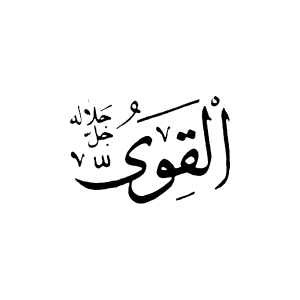 الْقَوِىُّ
جَلَّ جَلَالُه